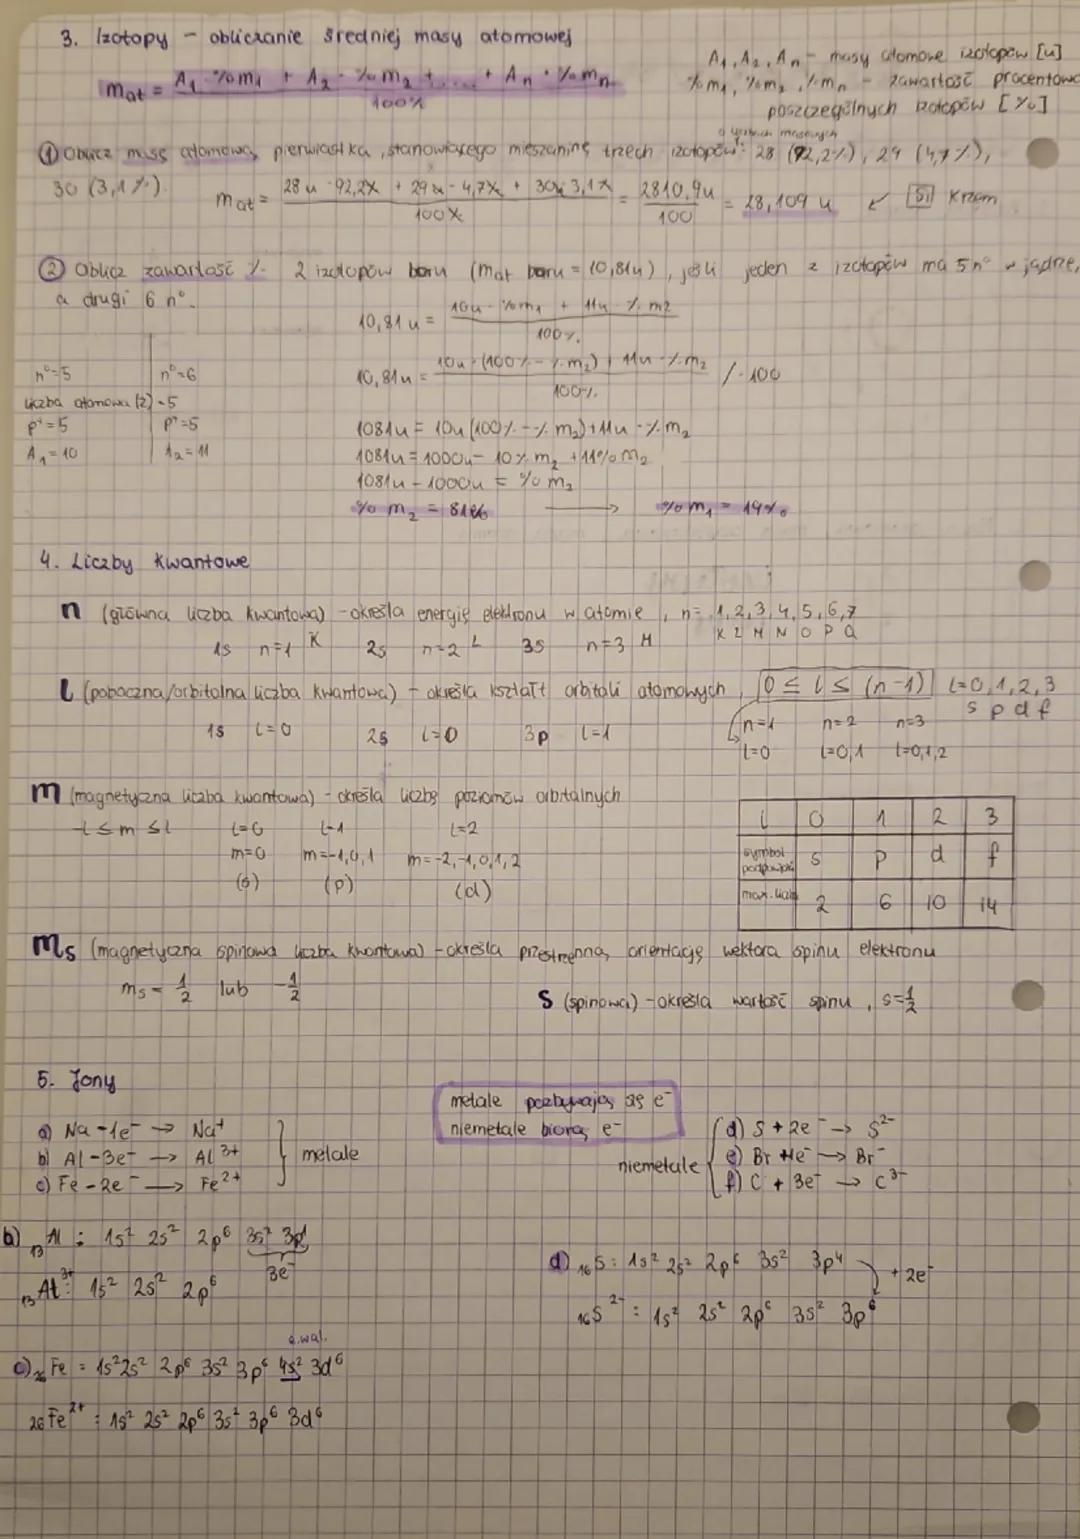 3. Izotopy - obliczanie średniej masy atomowej
mat = A₁ · %m₁ + A₂ · %m₂ + .... + An · %mn / 100%
A₁, A₂, An - masy atomowe izotopów [u]
%m₁, %m₂, %mn - zawartość procentowa
poszczególnych izotopów [%]
o liczbach masowych
① Oblicz masę atomową pierwiastka, stanowiącego mieszaninę trzech izotopów: 28 (92,2%), 29 (4,7%),
30 (3,1%).
mat = 28u · 92,2% + 29u · 4,7% + 30u · 3,1% / 100% = 2810,9u / 100 = 28,109 u ↙ Si Krzem
② Oblicz zawartość % 2 izotopów boru (mat boru = 10,81u), jeśli jeden z izotopów ma 5n° w jądrze,
a drugi 6 n°.
10,81 u = 10u · %m₁ + 11u · % m2 / 100%
n°=5 n°=6
liczba atomowa (Z) = 5
p⁺=5 p⁺=5
A₁=10 A₂=11
10,81u = 10u · (100% - % m₂) + 11u · % m₂ / 100% / · 100
1081u = 10u (100% - % m₂) + 11u · % m₂
1081u = 1000u - 10% m₂ + 11% m₂
1081u - 1000u = % m₂
% m₂ = 81% → % m₁ = 19%
4. Liczby kwantowe
n (główna liczba kwantowa) - określa energię elektronu w atomie, n= 1,2,3,4,5,6,7
K L M N O P Q
1s n=1 K 2s n=2 L 3s n=3 M
l (poboczna/orbitalna liczba kwantowa) - określa kształt orbitali atomowych, 0 ≤ l ≤ (n-1) l=0,1,2,3
s p d f
1s l=0 2s l=0 3p l=1
n=1 n=2 n=3
l=0 l=0,1 l=0,1,2
m (magnetyczna liczba kwantowa) - określa liczbę poziomów orbitalnych
-l ≤ m ≤ l l=0 l=1 l=2
m=0 m=-1,0,1 m=-2,-1,0,1,2
(s) (p) (d)
l 0 1 2 3
symbol s p d f
max. 2 6 10 14
ms (magnetyczna spinowa liczba kwantowa) - określa przestrzenną orientację wektora spinu elektronu
ms = 1/2 lub -1/2
S (spinowa) - określa wartość spinu, s=1/2
5. Jony
metale pozbywają się e⁻
niemetale biorą e⁻
a) Na - 1e⁻ → Na⁺
b) Al - 3e⁻ → Al³⁺
c) Fe - 2e⁻ → Fe²⁺
metale
niemetale
d) S + 2e⁻ → S²⁻
e) Br + 1e⁻ → Br⁻
f) C + 3e⁻ → C³⁻
b) ₁₃Al : 1s² 2s² 2p⁶ 3s² 3p¹
3e⁻
₁₃Al³⁺: 1s² 2s² 2p⁶
d) ₁₆S : 1s² 2s² 2p⁶ 3s² 3p⁴ + 2e⁻
₁₆S²⁻ : 1s² 2s² 2p⁶ 3s² 3p⁶
e.wal.
c) ₂₆Fe : 1s² 2s² 2p⁶ 3s² 3p⁶ 4s² 3d⁶
₂₆Fe²⁺ : 1s² 2s² 2p⁶ 3s² 3p⁶ 3d⁶